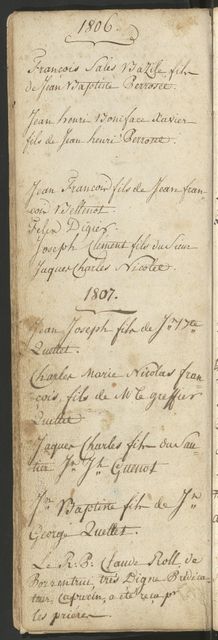 1806.
François Sales Bazile fils
de Jean Baptiste Perroset.
Jean henri Boniface Xavier
fils de Jean henri Perroset.
Jean François fils de Jean fran
cois Bellenot.
Felix Digier.
Joseph Clement fils du Sieur
Jaque Charles Nicolet.
1807.
Jean Joseph fils de Jn Bte
Quellet.
Charles Marie Nicolas fran
çois, fils de M le greffier
Jaque Charles fils du
Jn Jh Guenot
Jn Baptiste fils de Jn
George Quellet.
Le R. P. Claude Roll, de
très Digne Prédica
teur, Capucin, a été recu pr
les prieres